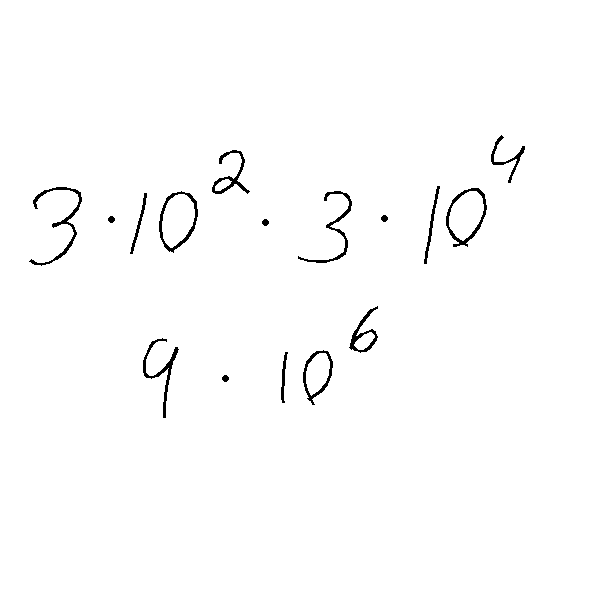 3 · 10² · 3 · 10⁴
9 · 10⁶